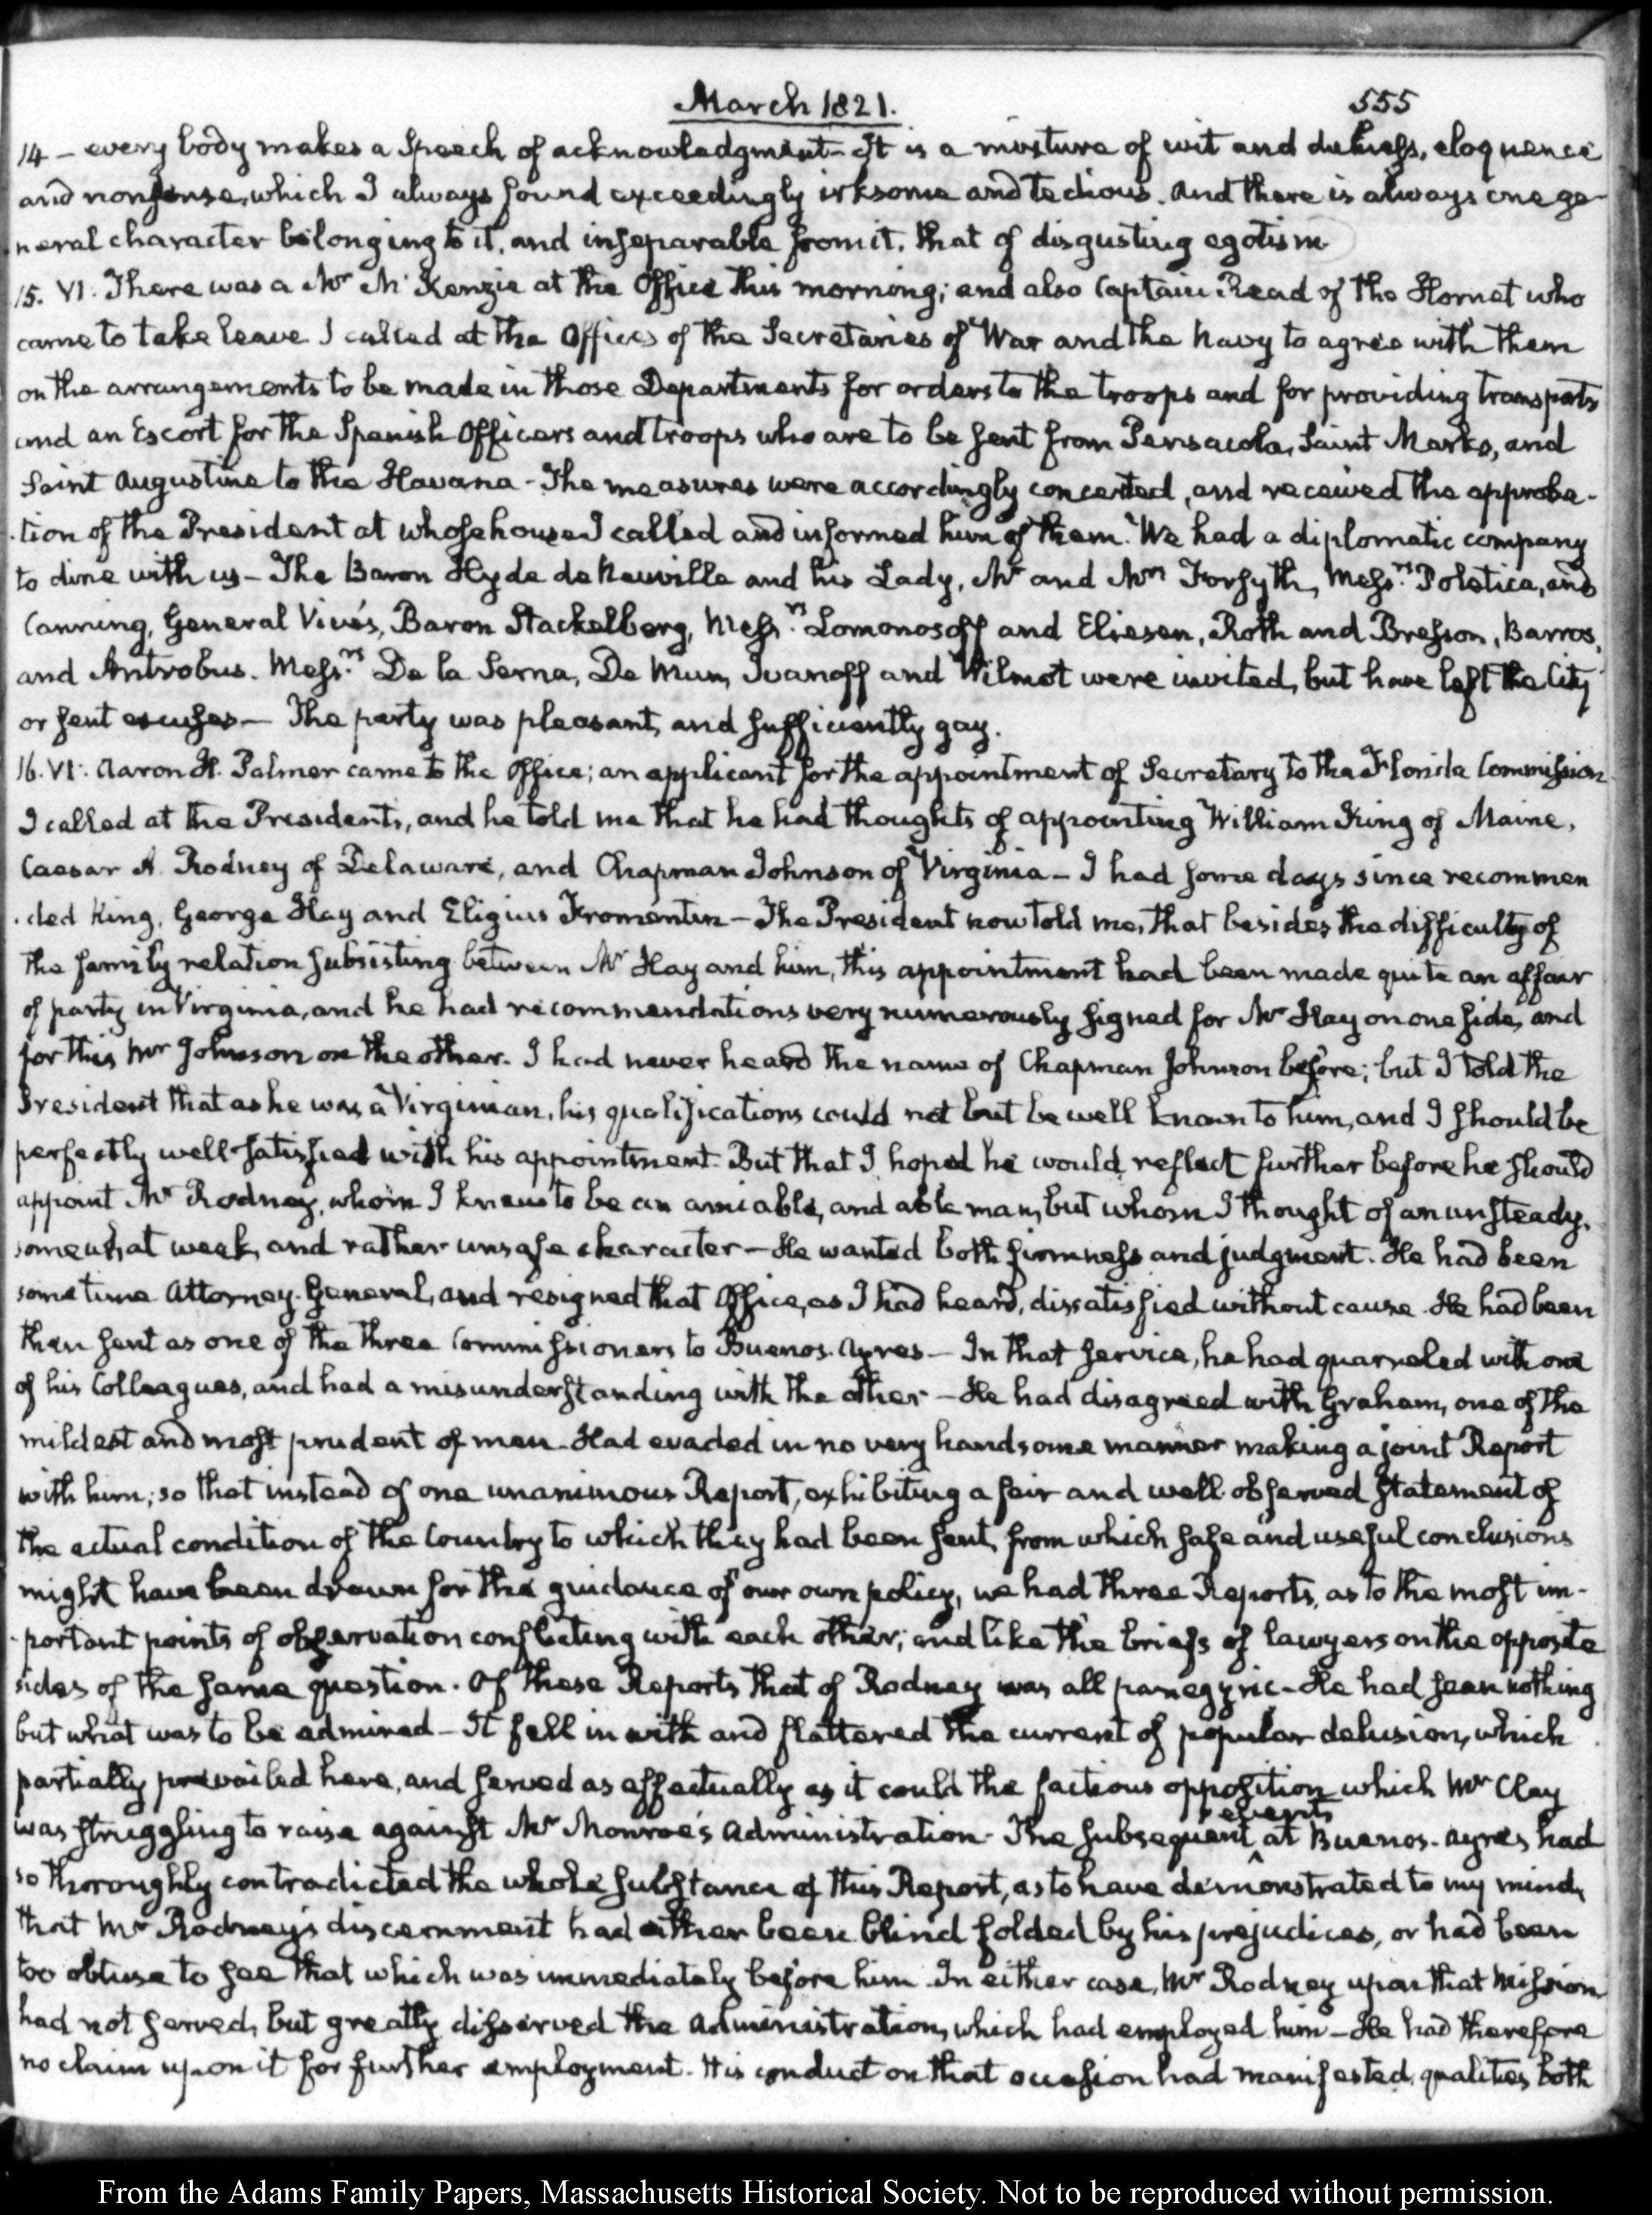 March 1821.
555
14 – every body makes a Speech of acknowledgment – It is a mixture of wit and dulness, eloquence
and nonsense, which I always found exceedingly irksome and tedious. And there is always one ge-
neral character belonging to it, and inseparable from it, that of disgusting egotism.
15. VI. There was a Mr. McKenzie at the Office this morning; and also Captain Read of the Hornet who
came to take leave I called at the Offices of the Secretaries of War and the Navy to agree with them
on the arrangements to be made in those Departments for orders to the troops and for providing transports
and an Escort for the Spanish Officers and troops who are to be sent from Pensacola, Saint Marks, and
Saint Augustine to the Havana – The measures were accordingly concerted, and received the approba-
-tion of the President at whose house I called and informed him of them. We had a diplomatic company
to dine with us – The Baron Hyde de Neuville and his Lady, Mr and Mrs Forsyth, Messrs. Poletica, and
Canning, General Vivés, Baron Stackelberg, Messrs. Lomonosoff and Eliesen, Roth and Bresson, Barros,
and Antrobus. Messrs. De la Serna, De Mun, Ivanoff and Wilmot were invited, but have left the City
or sent excuses – The party was pleasant, and sufficiently gay.
16. VI. Aaron H. Palmer came to the Office; an applicant for the appointment of Secretary to the Florida Commission
I called at the Presidents, and he told me that he had thoughts of appointing William King of Maine,
Caesar A. Rodney of Delaware, and Chapman Johnson of Virginia – I had some days since recommen
-ded King, George Hay and Eligius Fromentin – The President now told me, that besides the difficulty of
the family relation subsisting between Mr Hay and him, this appointment had been made quite an affair
of party in Virginia, and he had recommendations very numerously signed for Mr Hay on one side, and
for this Mr Johnson on the other. I had never heard the name of Chapman Johnson before; but I told the
President that as he was a Virginian, his qualifications could not but be well known to him, and I should be
perfectly well satisfied with his appointment. But that I hoped he would reflect further before he should
appoint Mr Rodney, whom I knew to be an amiable, and able man, but whom I thought of an unsteady,
somewhat weak, and rather unsafe character – He wanted both firmness and judgment. He had been
some time Attorney-General, and resigned that Office, as I had heard, dissatisfied without cause. He had been
then sent as one of the three Commissioners to Buenos-Ayres – In that service, he had quarreled with one
of his Colleagues, and had a misunderstanding with the other – He had disagreed with Graham, one of the
mildest and most prudent of men. Had evaded in no very handsome manner making a joint Report
with him; so that instead of one unanimous Report, exhibiting a fair and well observed statement of
the actual condition of the Country to which they had been sent, from which safe and useful conclusions
might have been drawn for the guidance of our own policy, we had three Reports, as to the most im-
-portant points of observation conflicting with each other; and like the briefs of lawyers on the opposite
sides of the same question. Of these Reports that of Rodney was all panegyric – He had seen nothing
but what was to be admired – It fell in with and flattered the current of popular delusion, which
partially prevailed here, and served as effectually as it could the factious opposition which Mr Clay
was struggling to raise against Mr Monroe's Administration. The subsequent ^events at Buenos-Ayres had
so thoroughly contradicted the whole substance of this Report, as to have demonstrated to my mind,
that Mr Rodney's discernment had either been blind folded by his prejudices, or had been
too obtuse to see that which was immediately before him. In either case, Mr Rodney upon that Mission
had not served, but greatly disserved the Administration, which had employed him – He had therefore
no claim upon it for further employment. His conduct on that occasion had manifested, qualities both
From the Adams Family Papers, Massachusetts Historical Society. Not to be reproduced without permission.